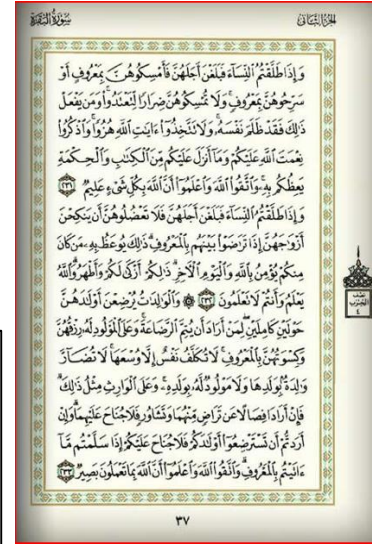 سُورَةُ البَقَرَةِ
الجُزْءُ الثَّانِي
وَإِذَا طَلَّقْتُمُ ٱلنِّسَآءَ فَبَلَغْنَ أَجَلَهُنَّ فَأَمْسِكُوهُنَّ بِمَعْرُوفٍ أَوْ
سَرِّحُوهُنَّ بِمَعْرُوفٍ وَلَا تُمْسِكُوهُنَّ ضِرَارًا لِّتَعْتَدُوا۟ وَمَن يَفْعَلْ
ذَٰلِكَ فَقَدْ ظَلَمَ نَفْسَهُۥ وَلَا تَتَّخِذُوٓا۟ ءَايَٰتِ ٱللَّهِ هُزُوًا وَٱذْكُرُوا۟
نِعْمَتَ ٱللَّهِ عَلَيْكُمْ وَمَآ أَنزَلَ عَلَيْكُم مِّنَ ٱلْكِتَٰبِ وَٱلْحِكْمَةِ
يَعِظُكُم بِهِۦ وَٱتَّقُوا۟ ٱللَّهَ وَٱعْلَمُوٓا۟ أَنَّ ٱللَّهَ بِكُلِّ شَىْءٍ عَلِيمٌ ٢٣١
وَإِذَا طَلَّقْتُمُ ٱلنِّسَآءَ فَبَلَغْنَ أَجَلَهُنَّ فَلَا تَعْضُلُوهُنَّ أَن يَنكِحْنَ
أَزْوَٰجَهُنَّ إِذَا تَرَٰضَوْا۟ بَيْنَهُم بِٱلْمَعْرُوفِ ذَٰلِكَ يُوعَظُ بِهِۦ مَن كَانَ
مِنكُمْ يُؤْمِنُ بِٱللَّهِ وَٱلْيَوْمِ ٱلْـَٔاخِرِ ذَٰلِكُمْ أَزْكَىٰ لَكُمْ وَأَطْهَرُ وَٱللَّهُ
يَعْلَمُ وَأَنتُمْ لَا تَعْلَمُونَ ٢٣٢ ۞ وَٱلْوَٰلِدَٰتُ يُرْضِعْنَ أَوْلَٰدَهُنَّ
حَوْلَيْنِ كَامِلَيْنِ لِمَنْ أَرَادَ أَن يُتِمَّ ٱلرَّضَاعَةَ وَعَلَى ٱلْمَوْلُودِ لَهُۥ رِزْقُهُنَّ
وَكِسْوَتُهُنَّ بِٱلْمَعْرُوفِ لَا تُكَلَّفُ نَفْسٌ إِلَّا وُسْعَهَا لَا تُضَآرَّ
وَٰلِدَةٌۢ بِوَلَدِهَا وَلَا مَوْلُودٌ لَّهُۥ بِوَلَدِهِۦ وَعَلَى ٱلْوَارِثِ مِثْلُ ذَٰلِكَ
فَإِنْ أَرَادَا فِصَالًا عَن تَرَاضٍ مِّنْهُمَا وَتَشَاوُرٍ فَلَا جُنَاحَ عَلَيْهِمَا وَإِنْ
أَرَدتُّمْ أَن تَسْتَرْضِعُوٓا۟ أَوْلَٰدَكُمْ فَلَا جُنَاحَ عَلَيْكُمْ إِذَا سَلَّمْتُم مَّآ
ءَاتَيْتُم بِٱلْمَعْرُوفِ وَٱتَّقُوا۟ ٱللَّهَ وَٱعْلَمُوٓا۟ أَنَّ ٱللَّهَ بِمَا تَعْمَلُونَ بَصِيرٌ ٢٣٣
نصف
الحزب
٤
٣٧